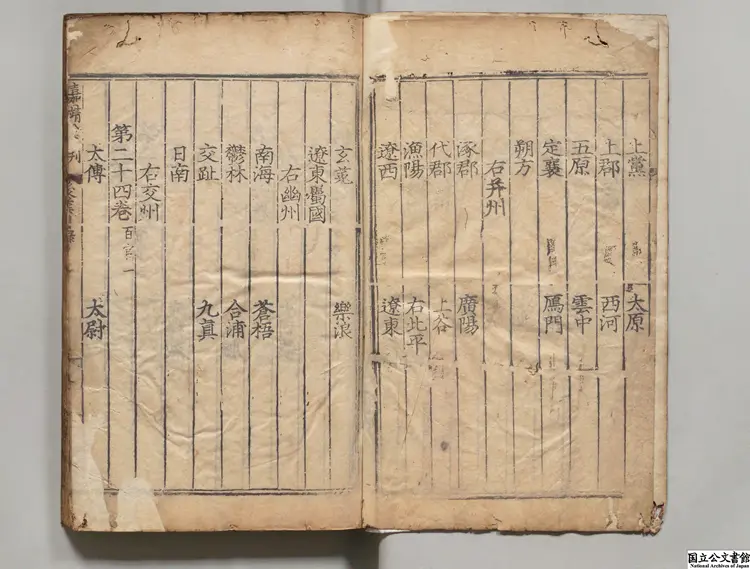 上黨 太原
上郡 西河
五原 雲中
定襄 鴈門
朔方
右并州
涿郡 廣陽
代郡 上谷
漁陽 右北平
遼西 遼東
玄菟 樂浪
遼東屬國
右幽州
南海 蒼梧
鬱林 合浦
交趾 九真
日南
右交州
第二十四卷 百官一
太傅 太尉
国立公文書館
National Archives of Japan